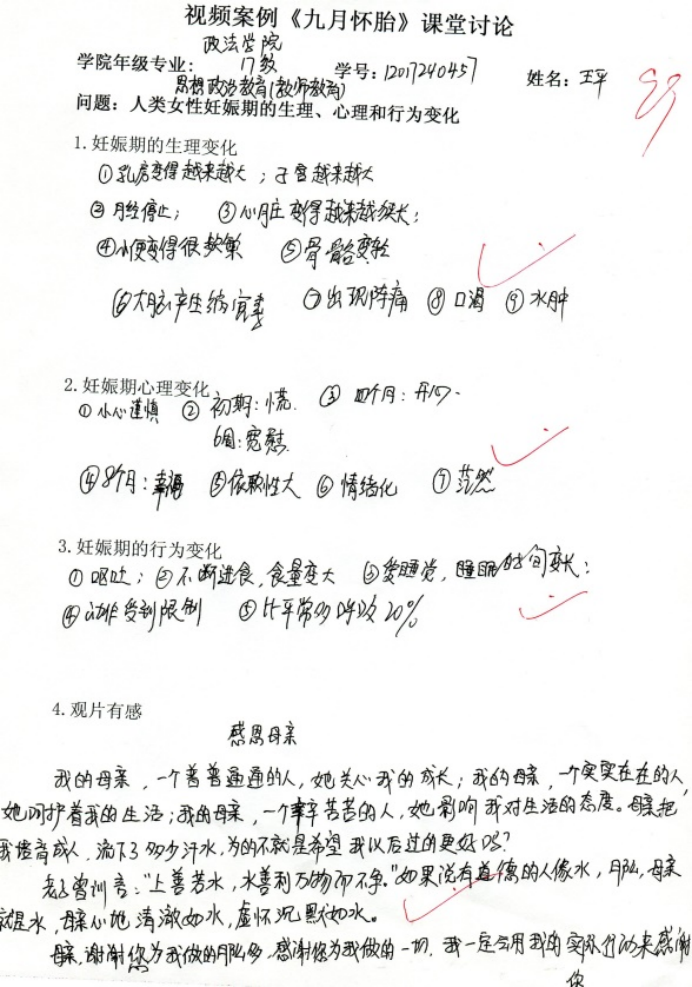 视频案例《九月怀胎》课堂讨论
政法学院
学院年级专业: 17级 学号: 12017240457 姓名: 王平
思想政治教育(教师教育)
问题: 人类女性妊娠期的生理、心理和行为变化
89
1.妊娠期的生理变化
①乳房变得越来越大;子宫越来越大
②月经停止; ③心脏变得越来越狭长;
④小便变得很频繁 ⑤骨骼变轻
⑥大脑产生缩宫素 ⑦出现阵痛 ⑧口渴 ⑨水肿
2.妊娠期心理变化
①小心谨慎 ②初期:慌. ③四个月:开心.
6周:宽慰
④8个月:幸福 ⑤依赖性大 ⑥情绪化 ⑦茫然
3.妊娠期的行为变化
①呕吐;②不断进食,食量变大 ③爱睡觉,睡眠时间变长;
④动作受到限制 ⑤比平常多呼吸20%
4.观片有感
感恩母亲
我的母亲,一个普普通通的人,她关心我的成长;我的母亲,一个实实在在的人,
她呵护着我的生活;我的母亲,一个辛苦的人,她影响我对生活的态度。母亲把
我培育成人,流下了多少汗水,为的不就是希望我以后过的更好吗?
老子曾训言:"上善若水,水善利万物而不争。"如果说有道德的人像水,那么,母亲
就是水,母亲心地清澈如水,虚怀沉默如水。
母亲,谢谢您为我做的那么多,感谢您为我做的一切,我一定会用我的实际行动来感谢
您